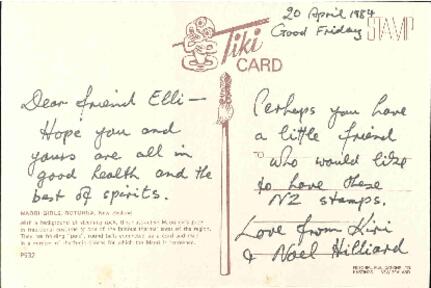 20 April 1984
Good Friday
STAMP
Tiki
CARD
Dear friend Elli —
Hope you and
yours are all in
good health and the
best of spirits.
Perhaps you have
a little friend
TO who would like
to have these
NZ stamps.
Love from Kiri
& Noel Hilliard
MAORI GIRLS, ROTORUA, New Zealand
P932